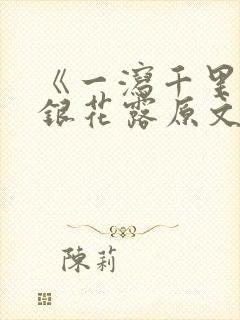 《一瀉千里
銀花露原文
陳莉